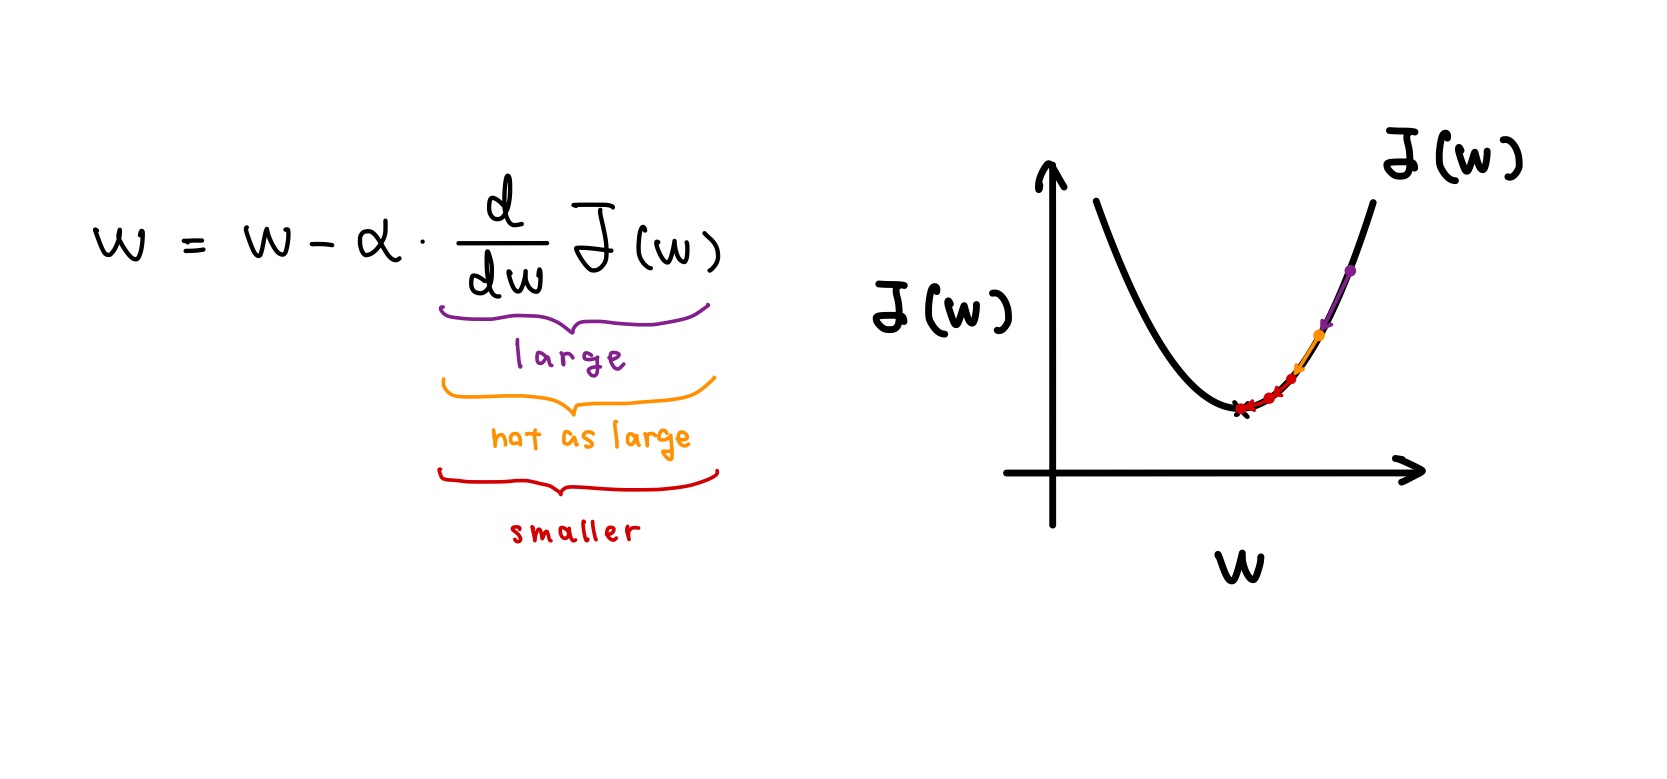 w = w - α · d/dw J(w)
large
not as large
smaller
J(w)
J(w)
w